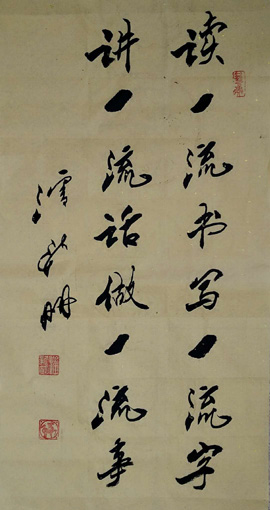 读一流书写一流字
讲一流话做一流事